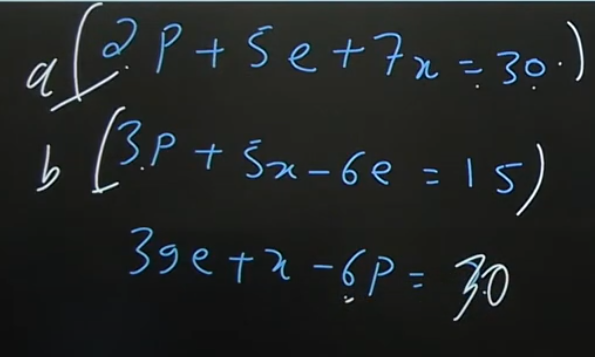 a(2p+5e+7x=30.)
b(3p+5x-6e=15)
39e+x-6p=30